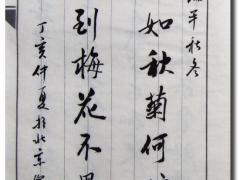 平秋冬
如秋菊何
到梅花不
丁亥仲夏於北京